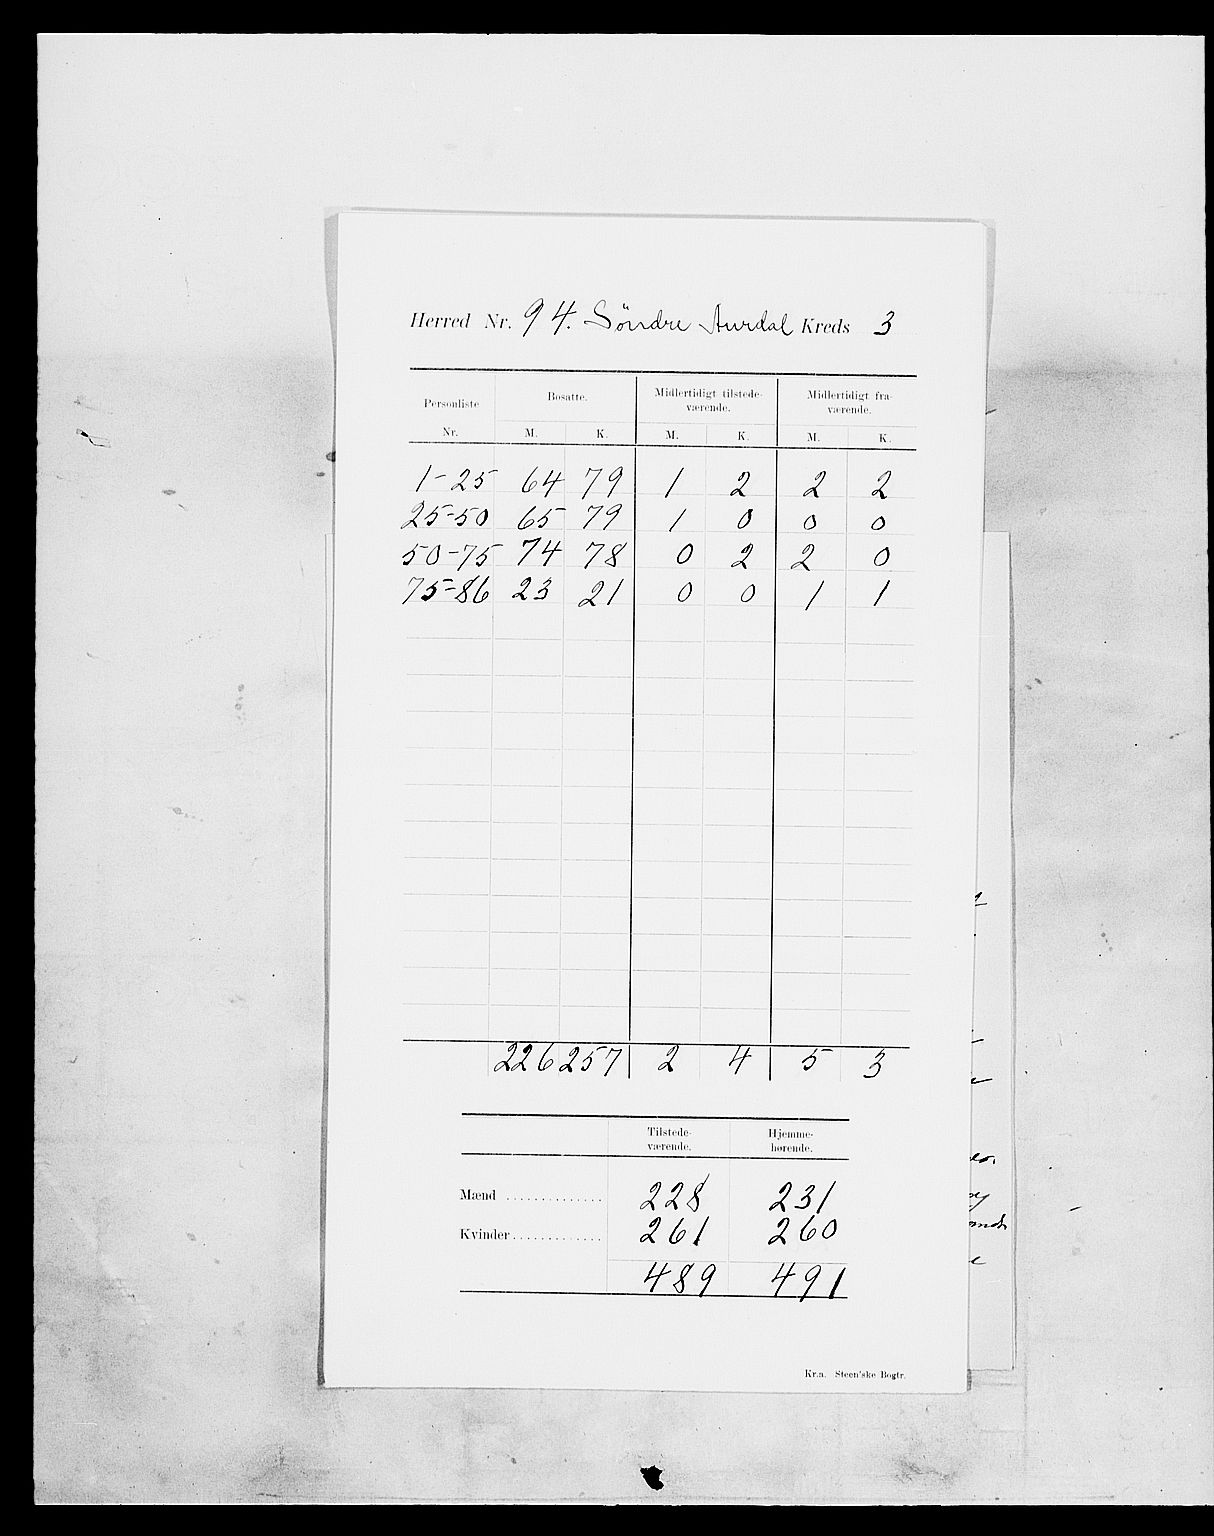 Herred Nr. 94. Söndre Aurdal Kreds 3
Personliste Nr. Bosatte. Midlertidigt tilstede-værende. Midlertidigt fra-værende.
M. K. M. K. M. K.
1-25 64 79 1 2 2 2
25-50 65 79 1 0 0 0
50-75 74 78 0 2 2 0
75-86 23 21 0 0 1 1
226 257 2 4 5 3
Tilstede-værende. Hjemme-hørende.
Mænd .............. 228 231
Kvinder ............. 261 260
489 491
Kr.a. Steen'ske Bogtr.